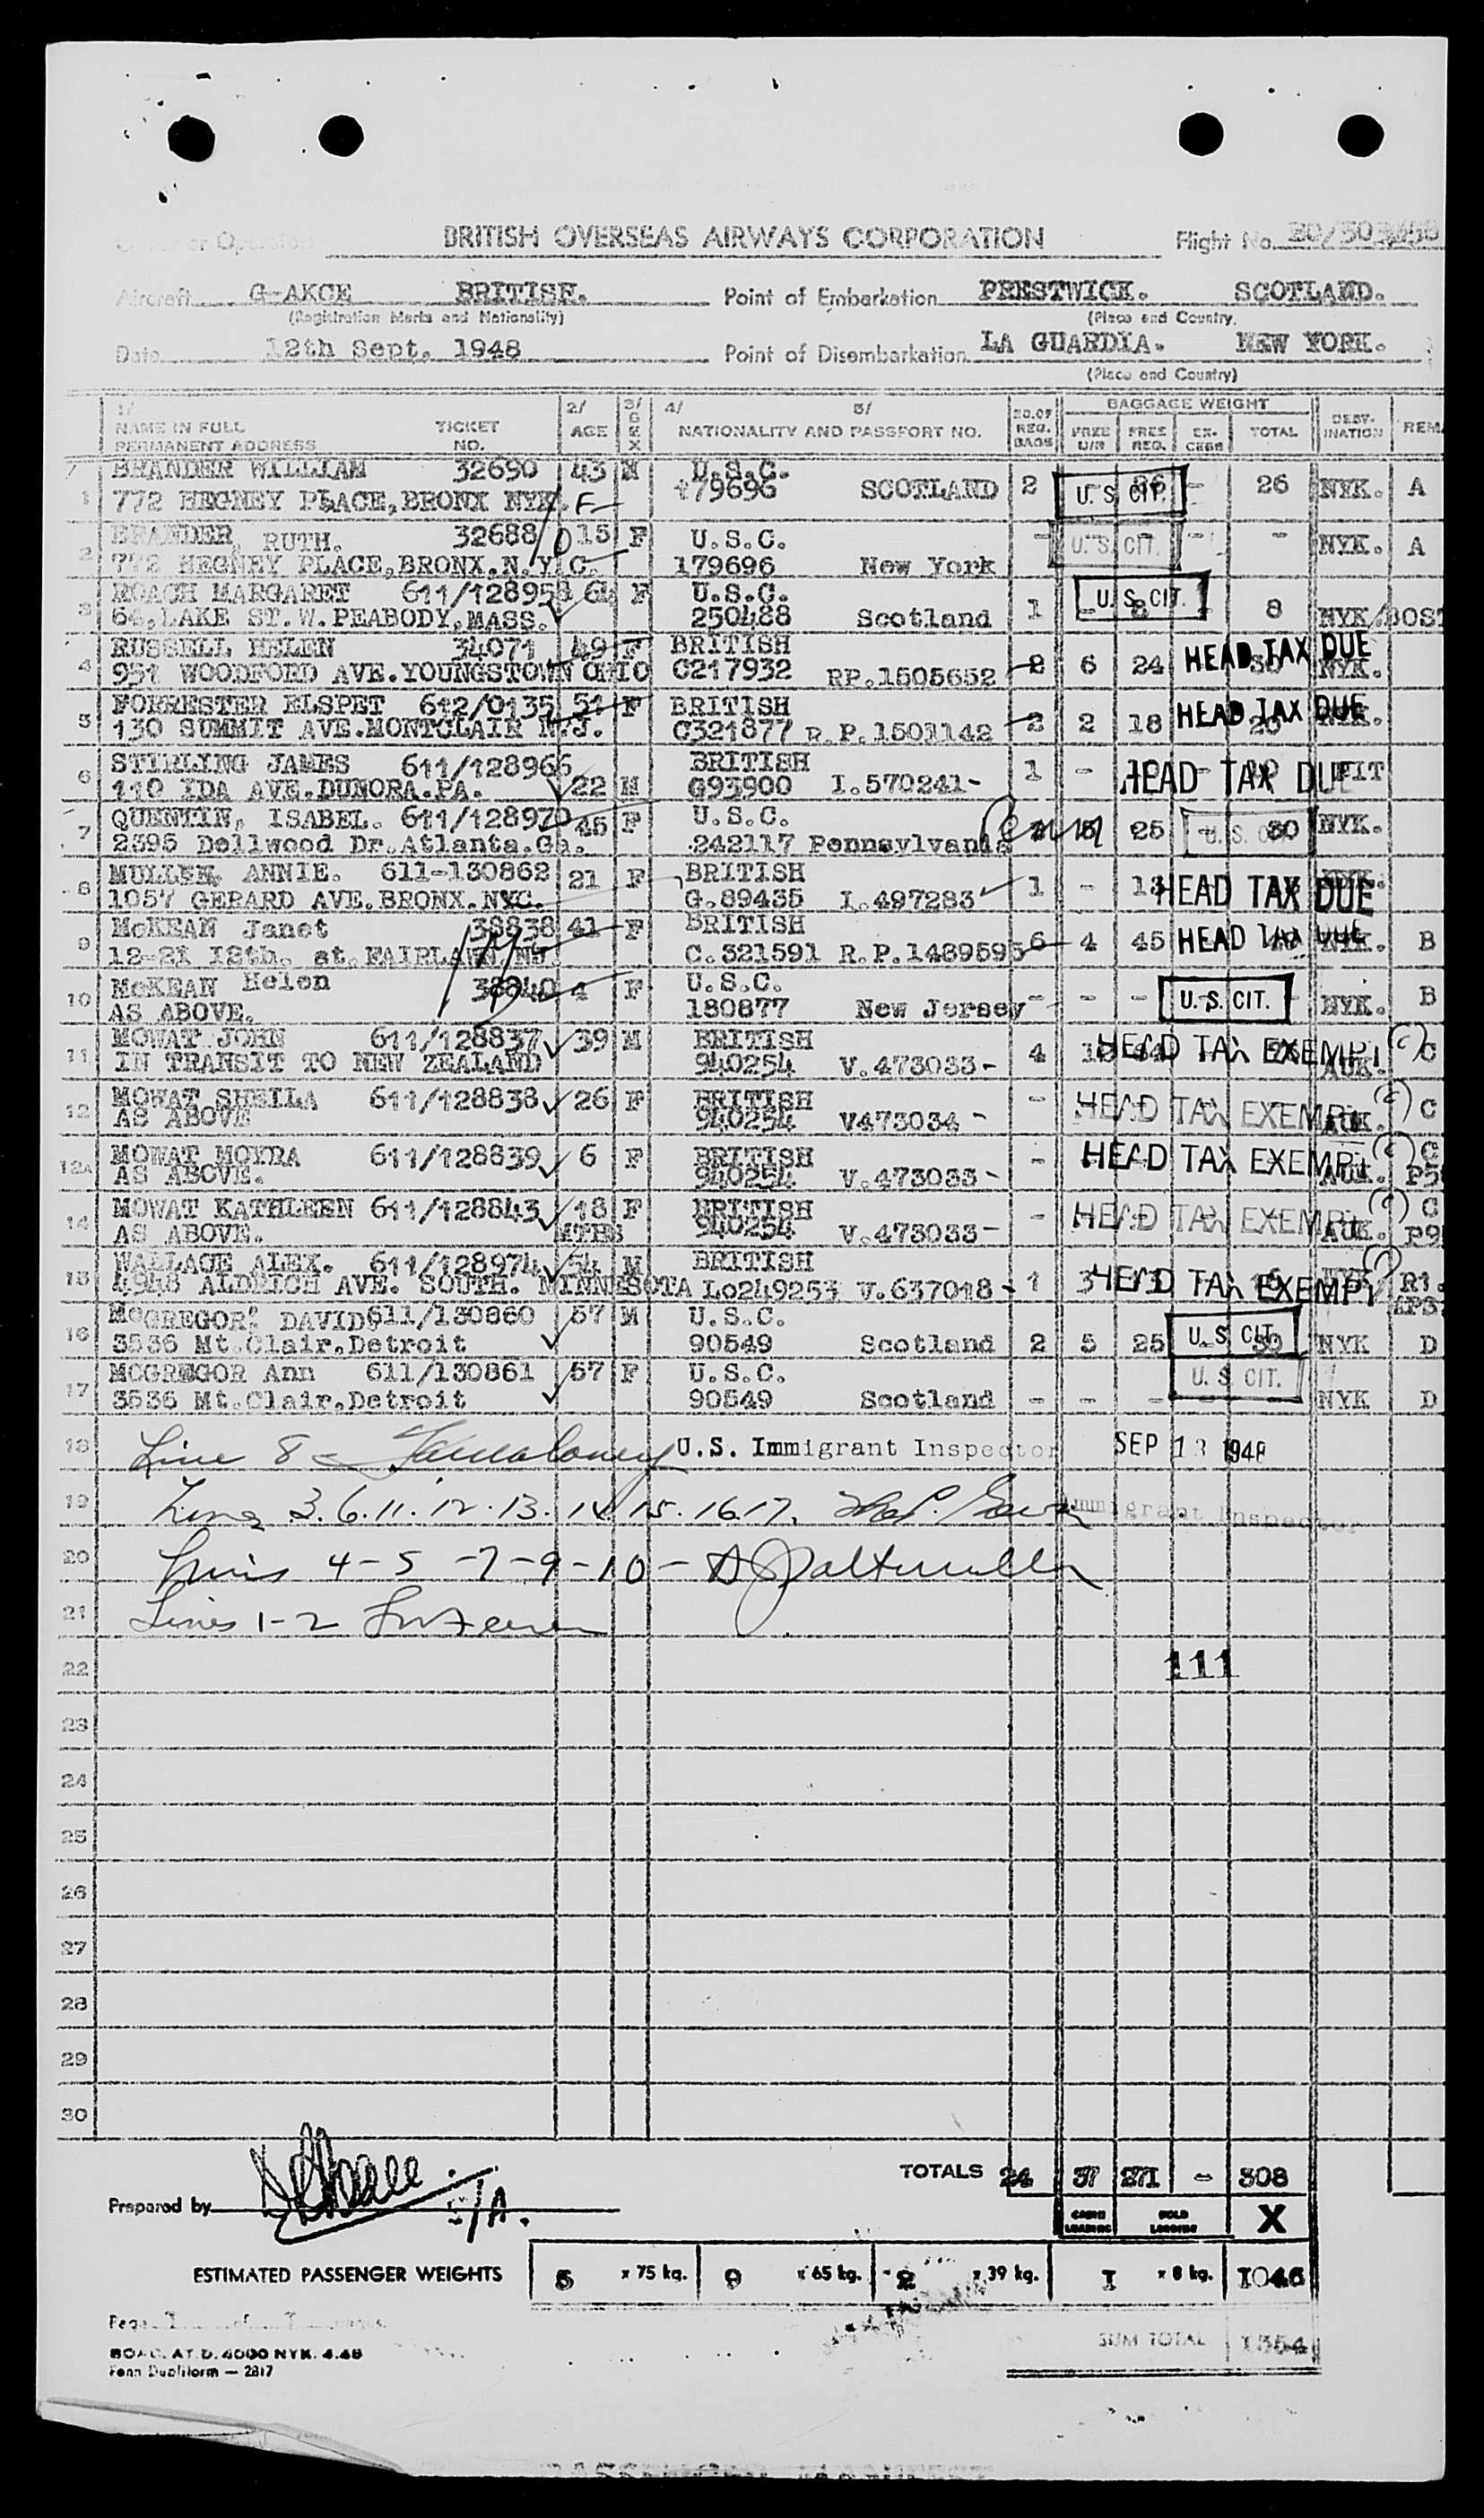 BRITISH OVERSEAS AIRWAYS CORPORATION Flight No.
Aircraft G-AKCE BRITISH. Point of Embarkation PRESTWICK. SCOTLAND.
(Registration Marks and Nationality) (Place and Country.
Date 12th Sept. 1948 Point of Disembarkation LA GUARDIA. NEW YORK.
(Place and Country)
BAGGAGE WEIGHT
1/ 2/ 3/ 4/ 5/
NAME IN FULL TICKET AGE SEX NATIONALITY AND PASSPORT NO. NO.OF REG. BAGS FREE U/R FREE REG. EX-CESS TOTAL DEST-INATION REM
PERMANENT ADDRESS NO.
1 BRANDER WILLIAM 32690 43 M U.S.C.
772 HEGNEY PLACE,BRONX NYK. F 179696 SCOTLAND 2 U. S. CIT. 26 - 26 NYK. A
2 BRANDER, RUTH. 32688 15 F U.S.C. - U. S. CIT. - - NYK. A
772 HEGNEY PLACE,BRONX.N.Y.C. 179696 New York
3 ROACH MARGARET 611/128958 64 F U.S.C.
64,LAKE ST.W.PEABODY,MASS. 250488 Scotland 1 - 8 U. S. CIT. 8 NYK/BOST
4 RUSSELL HELEN 34071 49 F BRITISH
951 WOODFORD AVE.YOUNGSTOWN OHIO C217932 RP.1505652 2 6 24 HEAD TAX DUE 30 NYK.
5 FORRESTER ELSPET 612/0135 51 F BRITISH
130 SUMMIT AVE.MONTCLAIR N.J. C321877 R.P.1501142 2 2 18 HEAD TAX DUE 20
6 STIRLING JAMES 611/128966 BRITISH
110 IDA AVE.DUNORA.PA. 22 M G93900 I.570241- 1 - HEAD TAX DUE PIT
7 QUENTIN, ISABEL. 611/128970 45 F U.S.C.
2395 Dellwood Dr.Atlanta.Ga. 242117 Pennsylvania 5 25 U. S. CIT. 30 NYK.
8 MULLEN, ANNIE. 611-130862 21 F BRITISH
1057 GERARD AVE.BRONX.NYC. G.89435 I.497283 1 - HEAD TAX DUE
9 McKEAN Janet 38838 41 F BRITISH
12-21 12th. st.FAIRLAWN.NJ. C.321591 R.P.1489595 6 4 45 HEAD TAX DUE B
10 McKEAN Helen 38840 4 F U.S.C.
AS ABOVE. 180877 New Jersey - - - U. S. CIT. - NYK. B
11 MOWAT JOHN 611/128837 39 M BRITISH
IN TRANSIT TO NEW ZEALAND 940254 V.473033- 4 HEAD TAX EXEMPT AUK. (c) C
12 MOWAT SHEILA 611/128838 26 F BRITISH
AS ABOVE 940254 V473034 - - HEAD TAX EXEMPT AUK. (c) C
12A MOWAT MOYRA 611/128839 6 F BRITISH
AS ABOVE. 940254 V.473033- - HEAD TAX EXEMPT AUK. (c) C
14 MOWAT KATHLEEN 611/128843 18 MTHS F BRITISH
AS ABOVE. 940254 V.473033- - HEAD TAX EXEMPT AUK. (c) C P9
15 WALLACE ALEX. 611/128974 54 M BRITISH
4948 ALDRICH AVE. SOUTH. MINNESOTA Lo249253 V.637018- 1 3 HEAD TAX EXEMPT
16 McGREGOR. DAVID. 611/130860 57 M U.S.C.
3536 Mt.Clair,Detroit 90549 Scotland 2 5 25 U. S. CIT. 30 NYK D
17 MCGREGOR Ann 611/130861 57 F U.S.C. U. S. CIT.
3536 Mt.Clair,Detroit 90549 Scotland - - - - - NYK D
18 Line 8 U.S. Immigrant Inspector SEP 13 1948
19 Lines 3.6.11.12.13.14.15.16.17. Immigrant Inspector
20 Lines 4-5-7-9-10-
21 Lines 1-2
22 111
23
24
25
26
27
28
29
30
TOTALS 24 37 271 - 308
Prepared by
CABIN LOADING HOLD LOADING X
ESTIMATED PASSENGER WEIGHTS 5 x 75 kg. 9 x 65 kg. 2 x 39 kg. 1 x 8 kg. 1046
Page 1 of
SUM TOTAL 1354
BOAC. AT.D. 4000 NYK. 4.48
Penn Dupliform — 2817